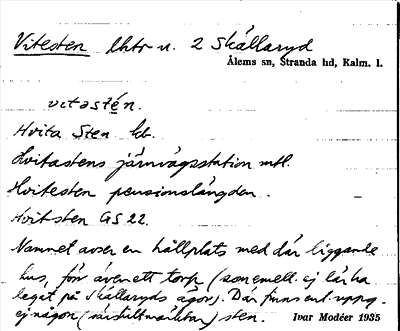 Vitesten lhtr u. 2 Skällaryd
Ålems sn, Stranda hd, Kalm. l.
vitastén.
Hvita Sten kb.
Hvitastens järnvägsstation mtl.
Hvitesten pensionslängden.
Hvitsten GS 22.
Namnet avser en hållplats med där liggande
hus, förr även ett torp (som emell. ej lär ha
legat på Skällaryds ägor). Där finns enl. uppg.
ej någon (särskilt märkbar) sten.
Ivar Modéer 1935